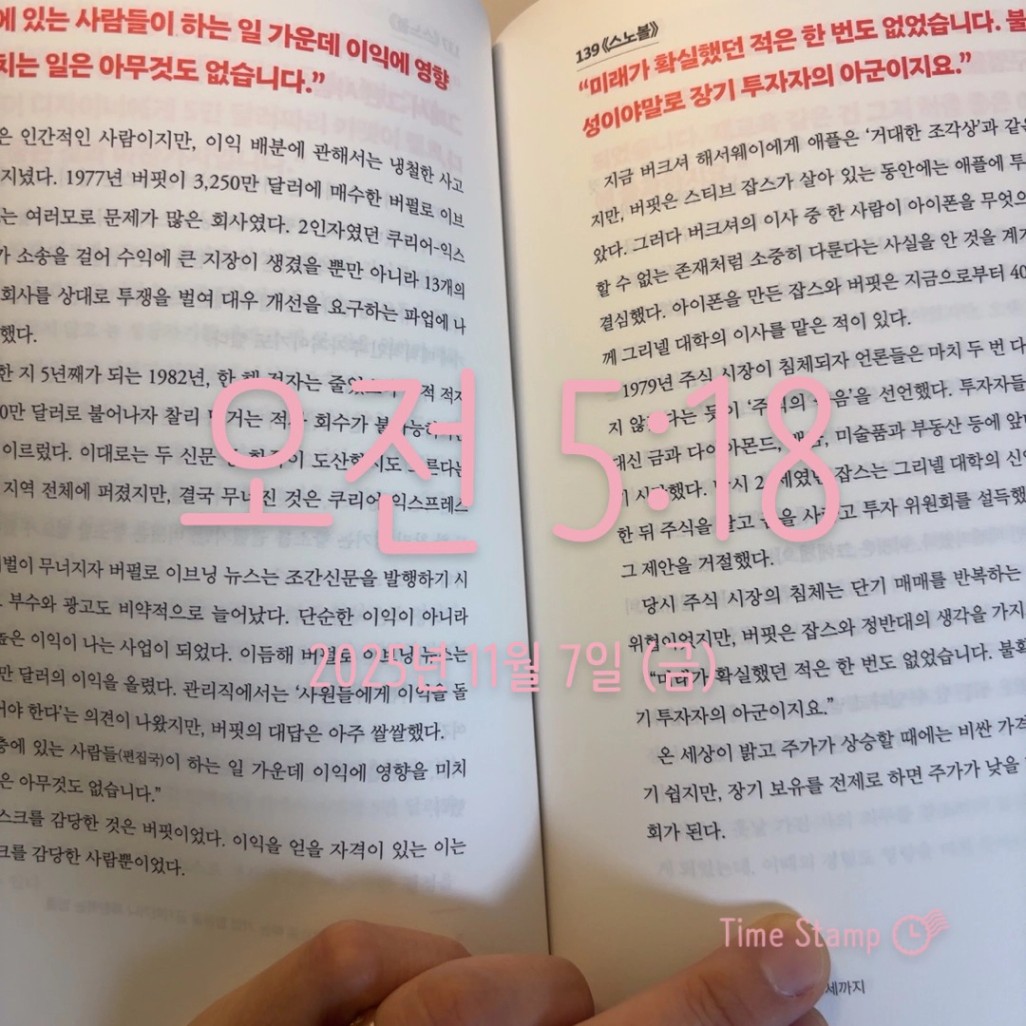 에 있는 사람들이 하는 일 가운데 이익에 영향
치는 일은 아무것도 없습니다.”
은 인간적인 사람이지만, 이익 배분에 관해서는 냉철한 사고
지녔다. 1977년 버핏이 3,250만 달러에 매수한 버펄로 이브
는 여러모로 문제가 많은 회사였다. 2인자였던 쿠리어-익스
가 소송을 걸어 수익에 큰 지장이 생겼을 뿐만 아니라 13개의
회사를 상대로 투쟁을 벌여 대우 개선을 요구하는 파업에 나
했다.
한 지 5년째가 되는 1982년, 한 해 적자는 적 적자
만 달러로 불어나자 찰리 적자 회수가
이르렀다. 이대로는 두 신문
지역 전체에 퍼졌지만, 결국 무너진 것은 쿠리어 익스프레스
벌이 무너지자 버펄로 이브닝 뉴스는 조간신문을 발행하기 시
부수와 광고도 비약적으로 늘어났다. 단순한 이익이 아니라
높은 이익이 나는 사업이 되었다. 이듬해 버펄로 이브닝 뉴스는
만 달러의 이익을 올렸다. 관리직에서는 ‘사원들에게 이익을 돌
어야 한다’는 의견이 나왔지만, 버핏의 대답은 아주 쌀쌀했다.
층에 있는 사람들(편집국)이 하는 일 가운데 이익에 영향을 미치
은 아무것도 없습니다."
스크를 감당한 것은 버핏이었다. 이익을 얻을 자격이 있는 이는
크를 감당한 사람뿐이었다.
139 《스노볼》
“미래가 확실했던 적은 한 번도 없었습니다. 불
성이야말로 장기 투자자의 아군이지요.”
지금 버크셔 해서웨이에게 애플은 ‘거대한 조각상’과 같은
지만, 버핏은 스티브 잡스가 살아 있는 동안에는 애플에 투
았다. 그러다 버크셔의 이사 중 한 사람이 아이폰을 무엇으
할 수 없는 존재처럼 소중히 다룬다는 사실을 안 것을 계기
결심했다. 아이폰을 만든 잡스와 버핏은 지금으로부터 40
께 그리넬 대학의 이사를 맡은 적이 있다.
1979년 주식 시장이 침체되자 언론들은 마치 두 번 다
지 않 다는 듯이 ‘주식의 죽음’을 선언했다. 투자자들
대신 금과 다이아몬드, 미술품과 부동산 등에 앞
시작했다. 당시 잡스는 그리넬 대학의 신
한 뒤 주식을 팔고 금을 투자 위원회를 설득했
그 제안을 거절했다.
당시 주식 시장의 침체는 단기 매매를 반복하는
위협이었지만, 버핏은 잡스와 정반대의 생각을 가지
“미래가 확실했던 적은 한 번도 없었습니다. 불확
기 투자자의 아군이지요.”
온 세상이 밝고 주가가 상승할 때에는 비싼 가격
기 쉽지만, 장기 보유를 전제로 하면 주가가 낮을
회가 된다.
세까지
오전 5:18
2025년 11월 7일 (금)
Time Stamp